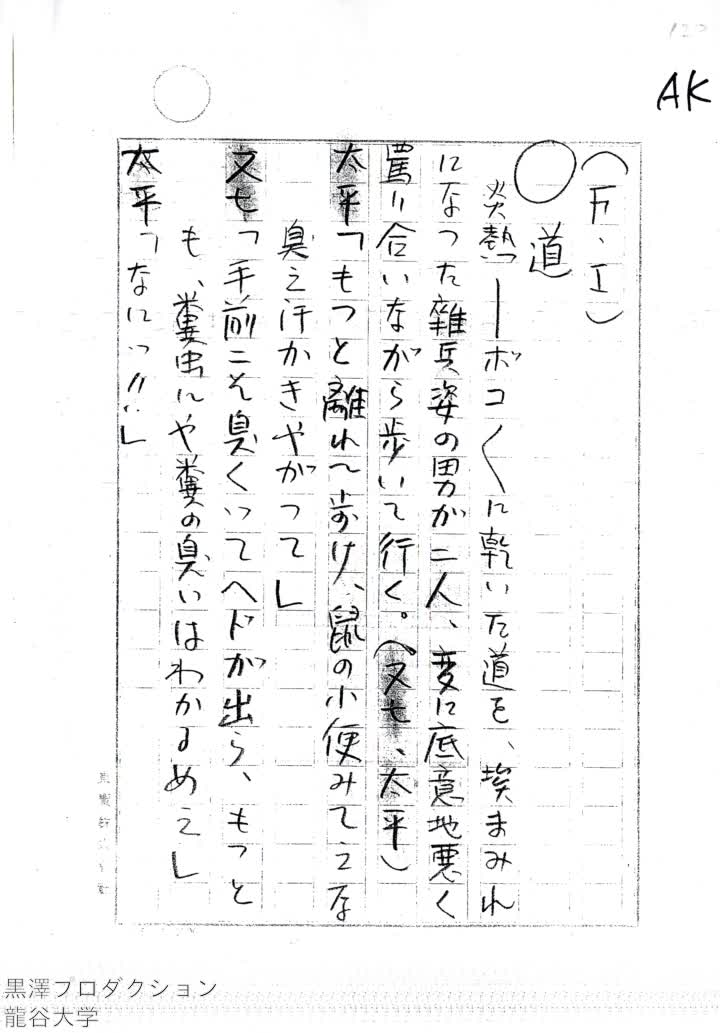 AK
（F、I）
○　道
炎熱――ボコ〱に乾いた道を、埃まみれ
になった雑兵姿の男が二人、変に底意地悪く
罵り合いながら歩いて行く。（又七、太平）
太平「もつと離れて歩け、鼠の小便みてえな
臭え汗かきやがつて」
又七「手前こそ臭くつてヘドが出ら、もつと
も、糞虫にや糞の臭いはわかるめえ」
太平「なにっ!!」
黒澤プロダクション
龍谷大学